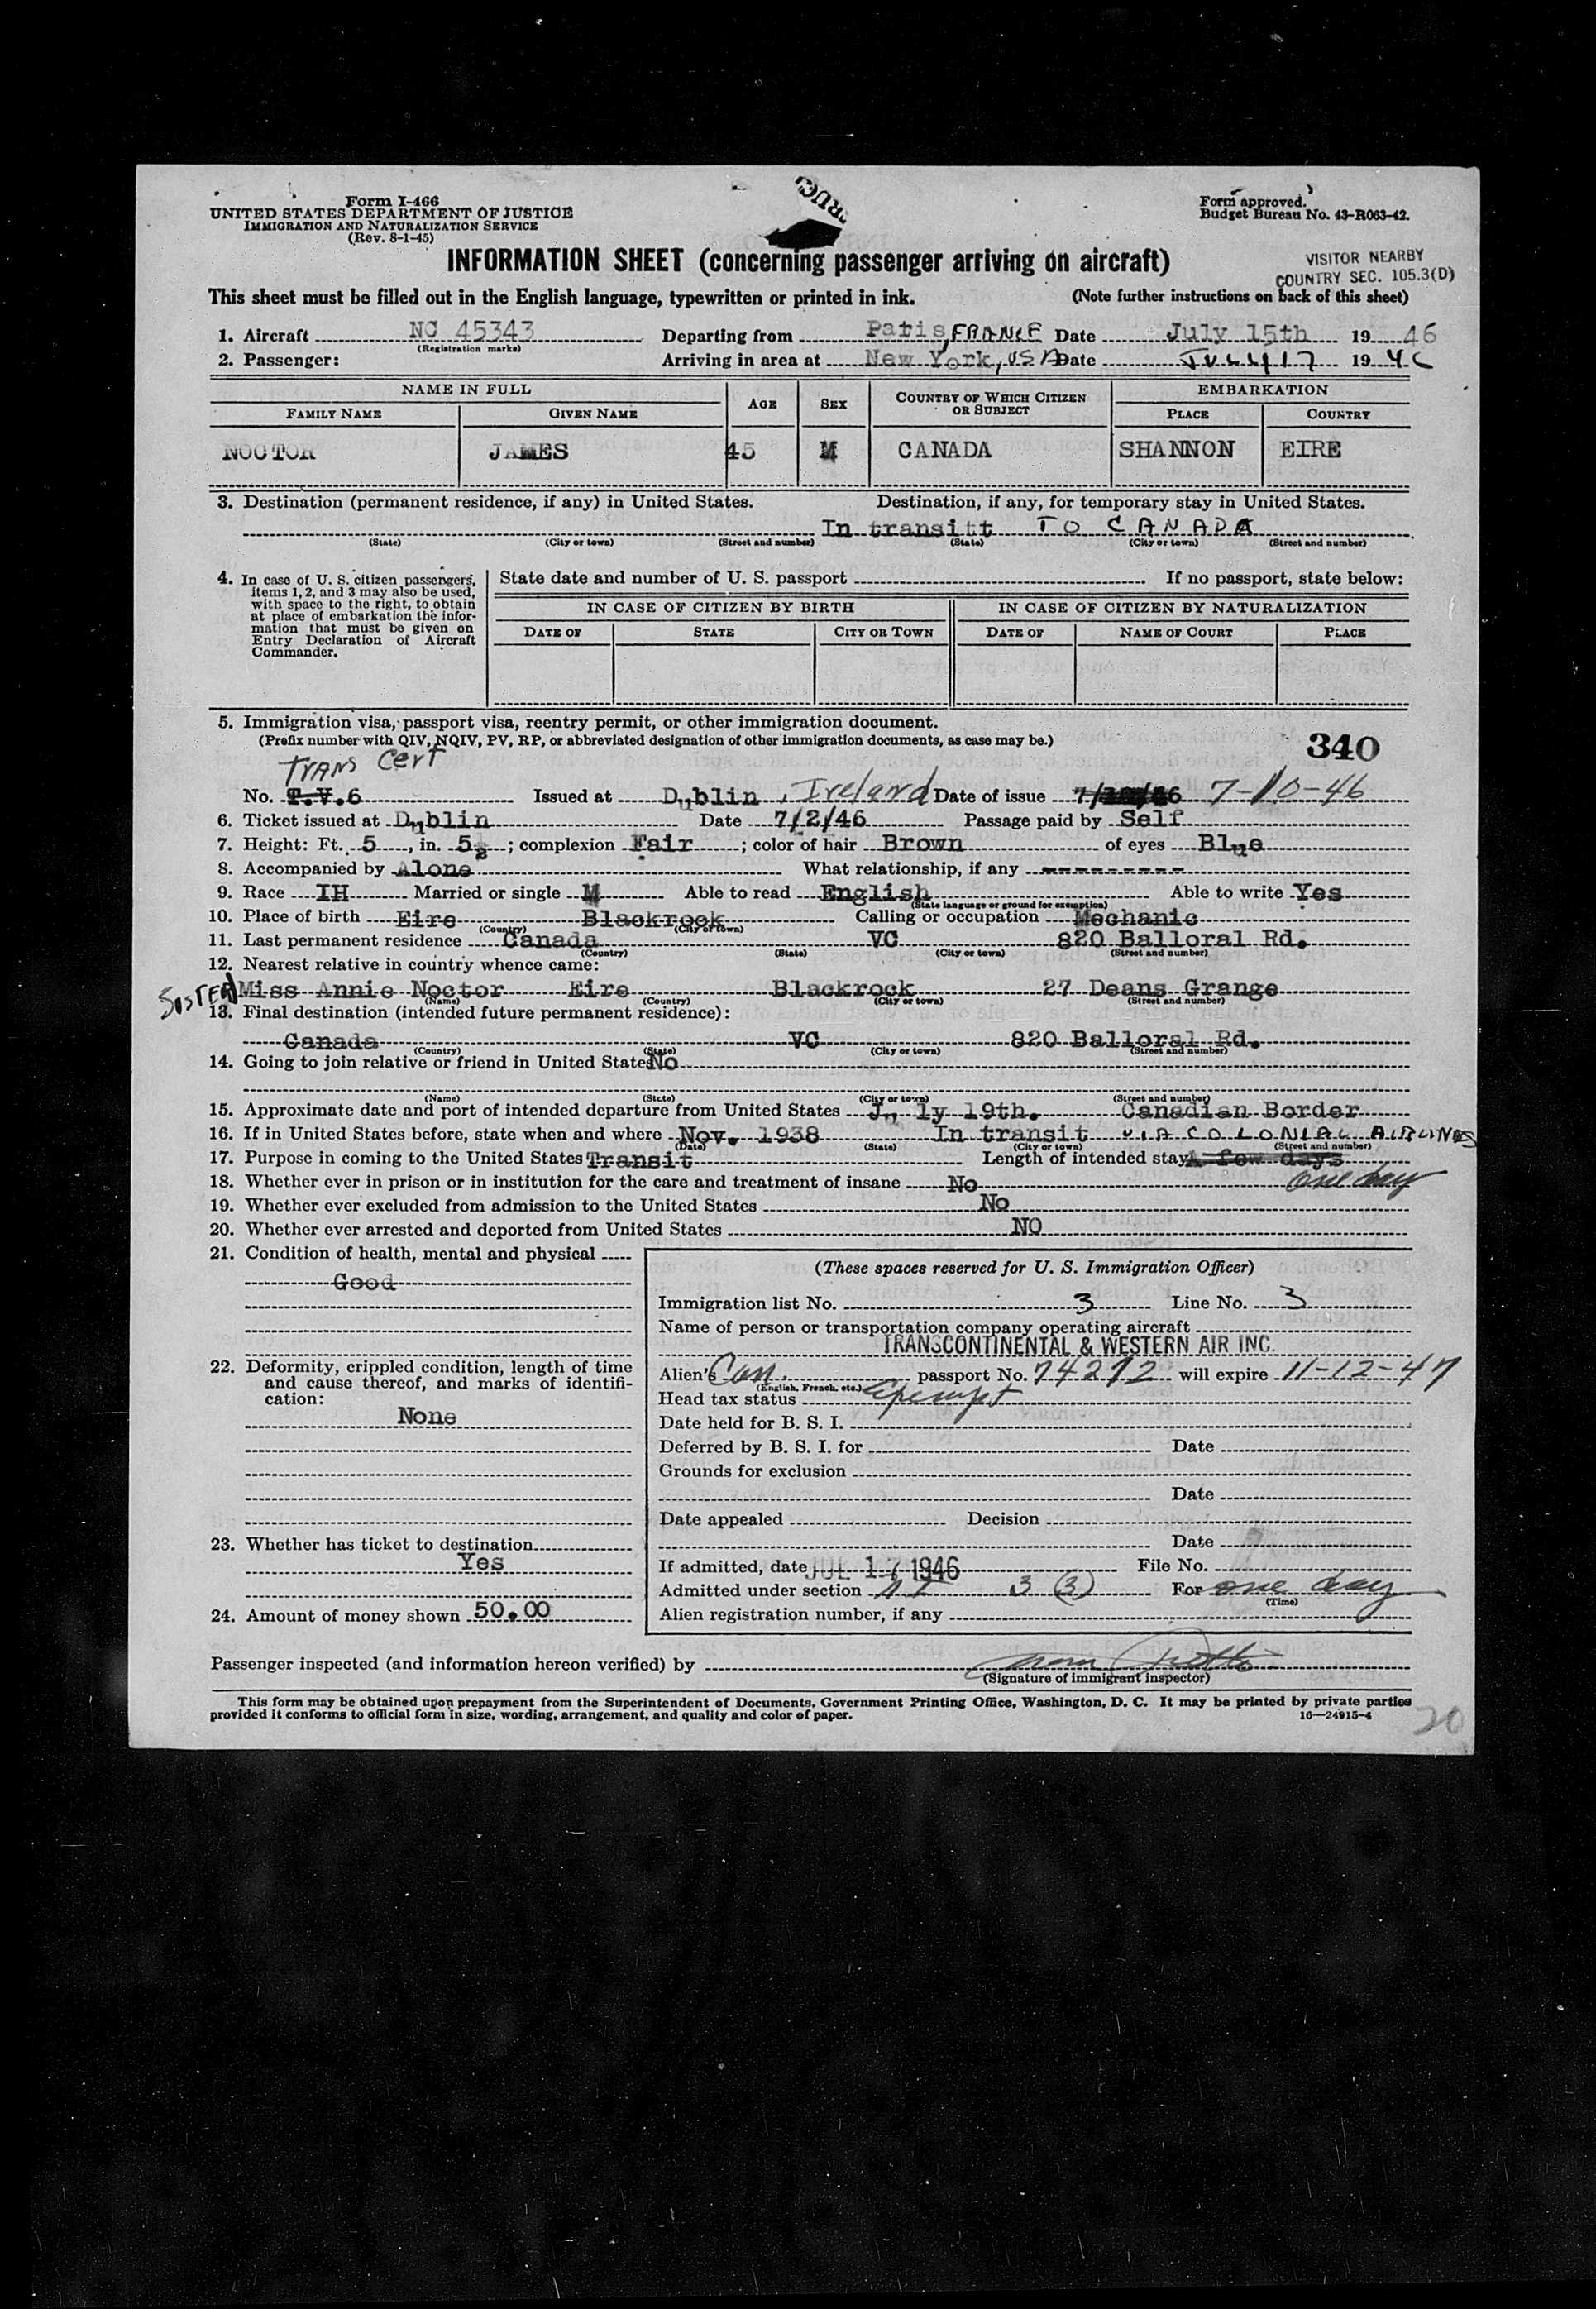 Form I-466
UNITED STATES DEPARTMENT OF JUSTICE
IMMIGRATION AND NATURALIZATION SERVICE
(Rev. 8-1-45)
Form approved.
Budget Bureau No. 43-R063-42.
INFORMATION SHEET (concerning passenger arriving on aircraft)
VISITOR NEARBY
COUNTRY SEC. 105.3(D)
This sheet must be filled out in the English language, typewritten or printed in ink. (Note further instructions on back of this sheet)
1. Aircraft NC 45343 Departing from Patis, FRANCE Date July 15th 19 46
(Registration marks)
2. Passenger: Arriving in area at New York, USA Date JULY 17 19 46
NAME IN FULL AGE SEX COUNTRY OF WHICH CITIZEN OR SUBJECT EMBARKATION
FAMILY NAME GIVEN NAME PLACE COUNTRY
NOCTOR JAMES 45 M CANADA SHANNON EIRE
3. Destination (permanent residence, if any) in United States. Destination, if any, for temporary stay in United States.
In transitt TO CANADA
(State) (City or town) (Street and number) (State) (City or town) (Street and number)
4. In case of U. S. citizen passengers, items 1, 2, and 3 may also be used, with space to the right, to obtain at place of embarkation the information that must be given on Entry Declaration of Aircraft Commander.
State date and number of U. S. passport If no passport, state below:
IN CASE OF CITIZEN BY BIRTH IN CASE OF CITIZEN BY NATURALIZATION
DATE OF STATE CITY OR TOWN DATE OF NAME OF COURT PLACE
5. Immigration visa, passport visa, reentry permit, or other immigration document.
(Prefix number with QIV, NQIV, PV, RP, or abbreviated designation of other immigration documents, as case may be.)
340
TRANS Cert
No. T.V.6 Issued at Dublin, Ireland Date of issue 7-10-46
6. Ticket issued at Dublin Date 7/2/46 Passage paid by Self
7. Height: Ft. 5, in. 5½; complexion Fair; color of hair Brown of eyes Blue
8. Accompanied by Alone What relationship, if any ---------
9. Race IH Married or single M Able to read English Able to write Yes
(State language or ground for exemption)
10. Place of birth Eire Blackrock Calling or occupation Mechanic
(Country) (City or town)
11. Last permanent residence Canada VC 820 Balloral Rd.
(Country) (State) (City or town) (Street and number)
12. Nearest relative in country whence came:
SISTER Miss Annie Noctor Eire Blackrock 27 Deans Grange
(Name) (Country) (City or town) (Street and number)
13. Final destination (intended future permanent residence):
Canada VC 820 Balloral Rd.
(Country) (State) (City or town) (Street and number)
14. Going to join relative or friend in United States No
(Name) (State) (City or town) (Street and number)
15. Approximate date and port of intended departure from United States July 19th. Canadian Border
16. If in United States before, state when and where Nov. 1938 In transit VIA COLONIAL AIRLINES
(Date) (State) (City or town) (Street and number)
17. Purpose in coming to the United States Transit Length of intended stay A few days
one day
18. Whether ever in prison or in institution for the care and treatment of insane No
19. Whether ever excluded from admission to the United States No
20. Whether ever arrested and deported from United States NO
21. Condition of health, mental and physical
Good
22. Deformity, crippled condition, length of time and cause thereof, and marks of identification:
None
23. Whether has ticket to destination
Yes
24. Amount of money shown 50.00
(These spaces reserved for U. S. Immigration Officer)
Immigration list No. 3 Line No. 3
Name of person or transportation company operating aircraft
TRANSCONTINENTAL & WESTERN AIR INC.
Alien's Can. passport No. 74272 will expire 11-12-47
(English, French, etc.)
Head tax status Exempt
Date held for B. S. I.
Deferred by B. S. I. for Date
Grounds for exclusion
Date
Date appealed Decision
Date
If admitted, date JUL 17 1946 File No.
Admitted under section 3 (3) For one day
(Time)
Alien registration number, if any
Passenger inspected (and information hereon verified) by
(Signature of immigrant inspector)
This form may be obtained upon prepayment from the Superintendent of Documents, Government Printing Office, Washington, D. C. It may be printed by private parties
provided it conforms to official form in size, wording, arrangement, and quality and color of paper. 16—24915-4
20